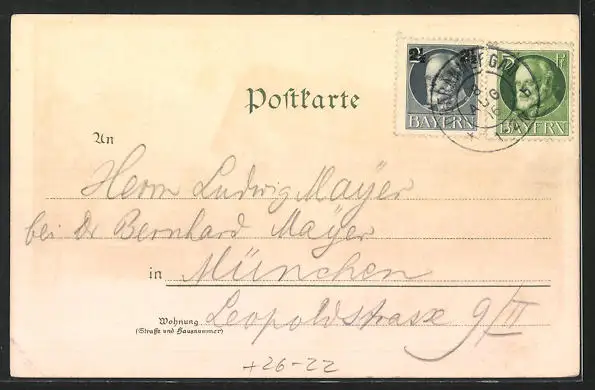 2½
5 Pf
BAYERN
BAYERN
8
AUG
16
Postkarte
An
Herrn Ludwig Mayer
bei Dr Bernhard Mayer
in München
Wohnung Leopoldstrasse 9/II
(Straße und Hausnummer)
+26-22